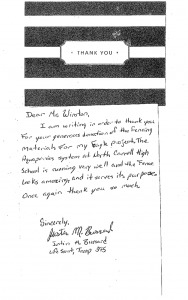 • THANK YOU •
Dear Mr. Winston,
I am writing in order to thank you
for your generous donation of the fencing
materials for my Eagle project. The
Aquaponics system at North Carroll High
School is running very well and the fence
looks amazing, and it serves its purpose.
Once again thank you so much.
Sincerely,
Justin M. Bussard
Justin M. Bussard
Life Scout, Troop